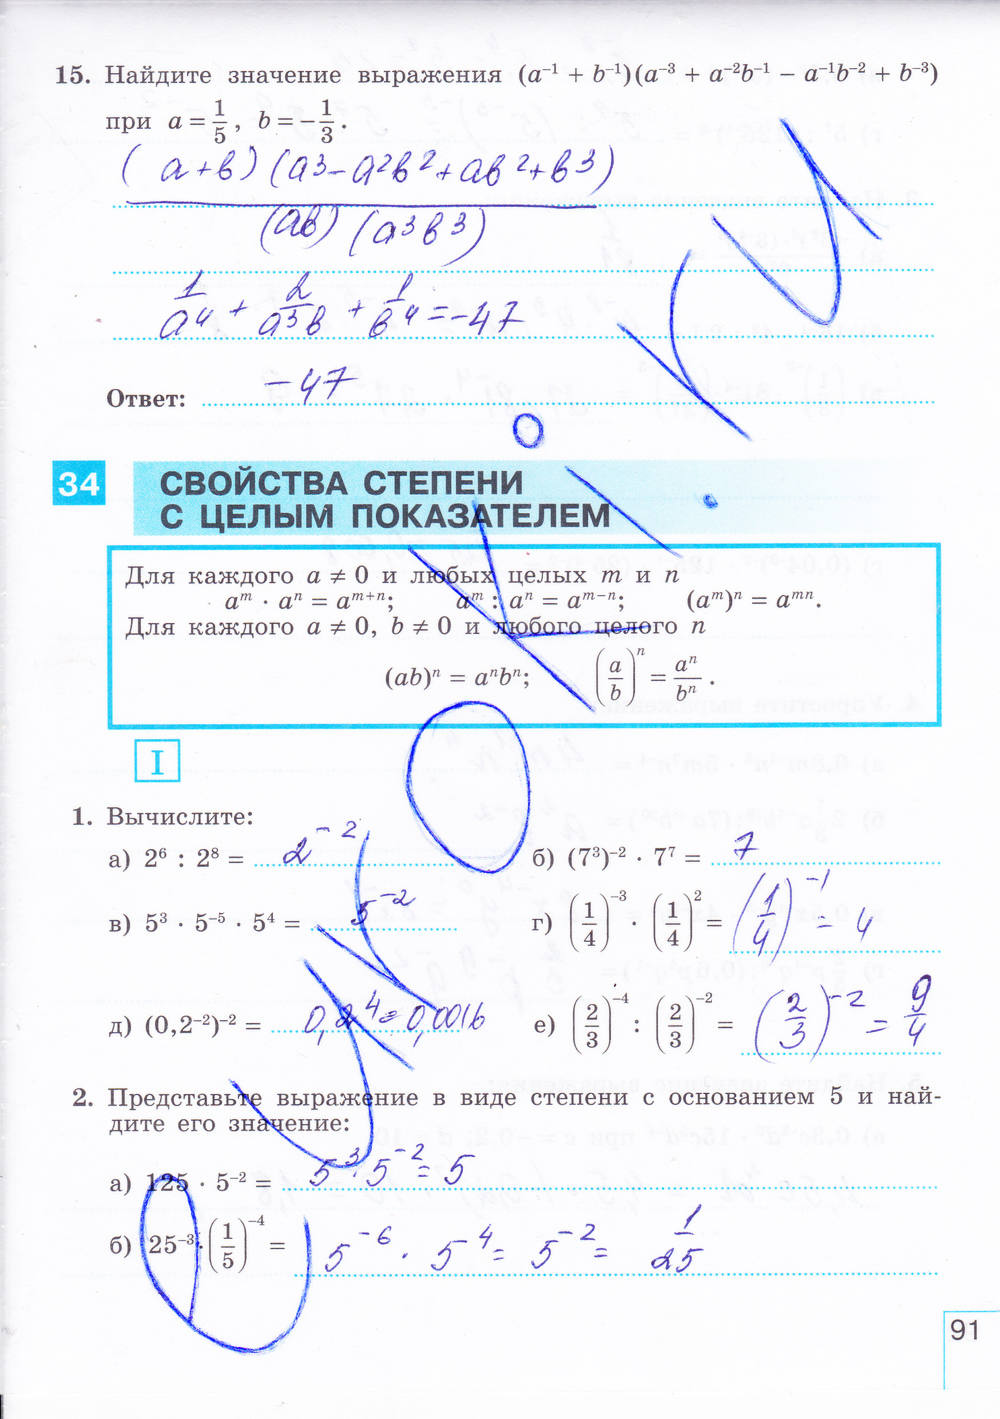 15. Найдите значение выражения (a⁻¹ + b⁻¹)(a⁻³ + a⁻²b⁻¹ − a⁻¹b⁻² + b⁻³)
при a = 1/5, b = −1/3.
(a+b) (a3−a²b²+ab²+b3)
(ab) (a3b3)
1/a4 + 2/a3b + 1/b4 = −47
Ответ: −47
34 СВОЙСТВА СТЕПЕНИ
С ЦЕЛЫМ ПОКАЗАТЕЛЕМ
Для каждого a ≠ 0 и любых целых m и n
aᵐ · aⁿ = aᵐ⁺ⁿ; aᵐ : aⁿ = aᵐ⁻ⁿ; (aᵐ)ⁿ = aᵐⁿ.
Для каждого a ≠ 0, b ≠ 0 и любого целого n
(ab)ⁿ = aⁿbⁿ; (a/b)ⁿ = aⁿ/bⁿ.
I
1. Вычислите:
а) 2⁶ : 2⁸ = 2⁻² б) (7³)⁻² · 7⁷ = 7
в) 5³ · 5⁻⁵ · 5⁴ = 5⁻² г) (1/4)⁻³ · (1/4)² = (1/4)⁻¹ = 4
д) (0,2⁻²)⁻² = 0,2⁴ = 0,0016 е) (2/3)⁻⁴ : (2/3)⁻² = (2/3)⁻² = 9/4
2. Представьте выражение в виде степени с основанием 5 и най-
дите его значение:
а) 125 · 5⁻² = 5³·5⁻² = 5
б) 25⁻³ · (1/5)⁻⁴ = 5⁻⁶ · 5⁴ = 5⁻² = 1/25
91